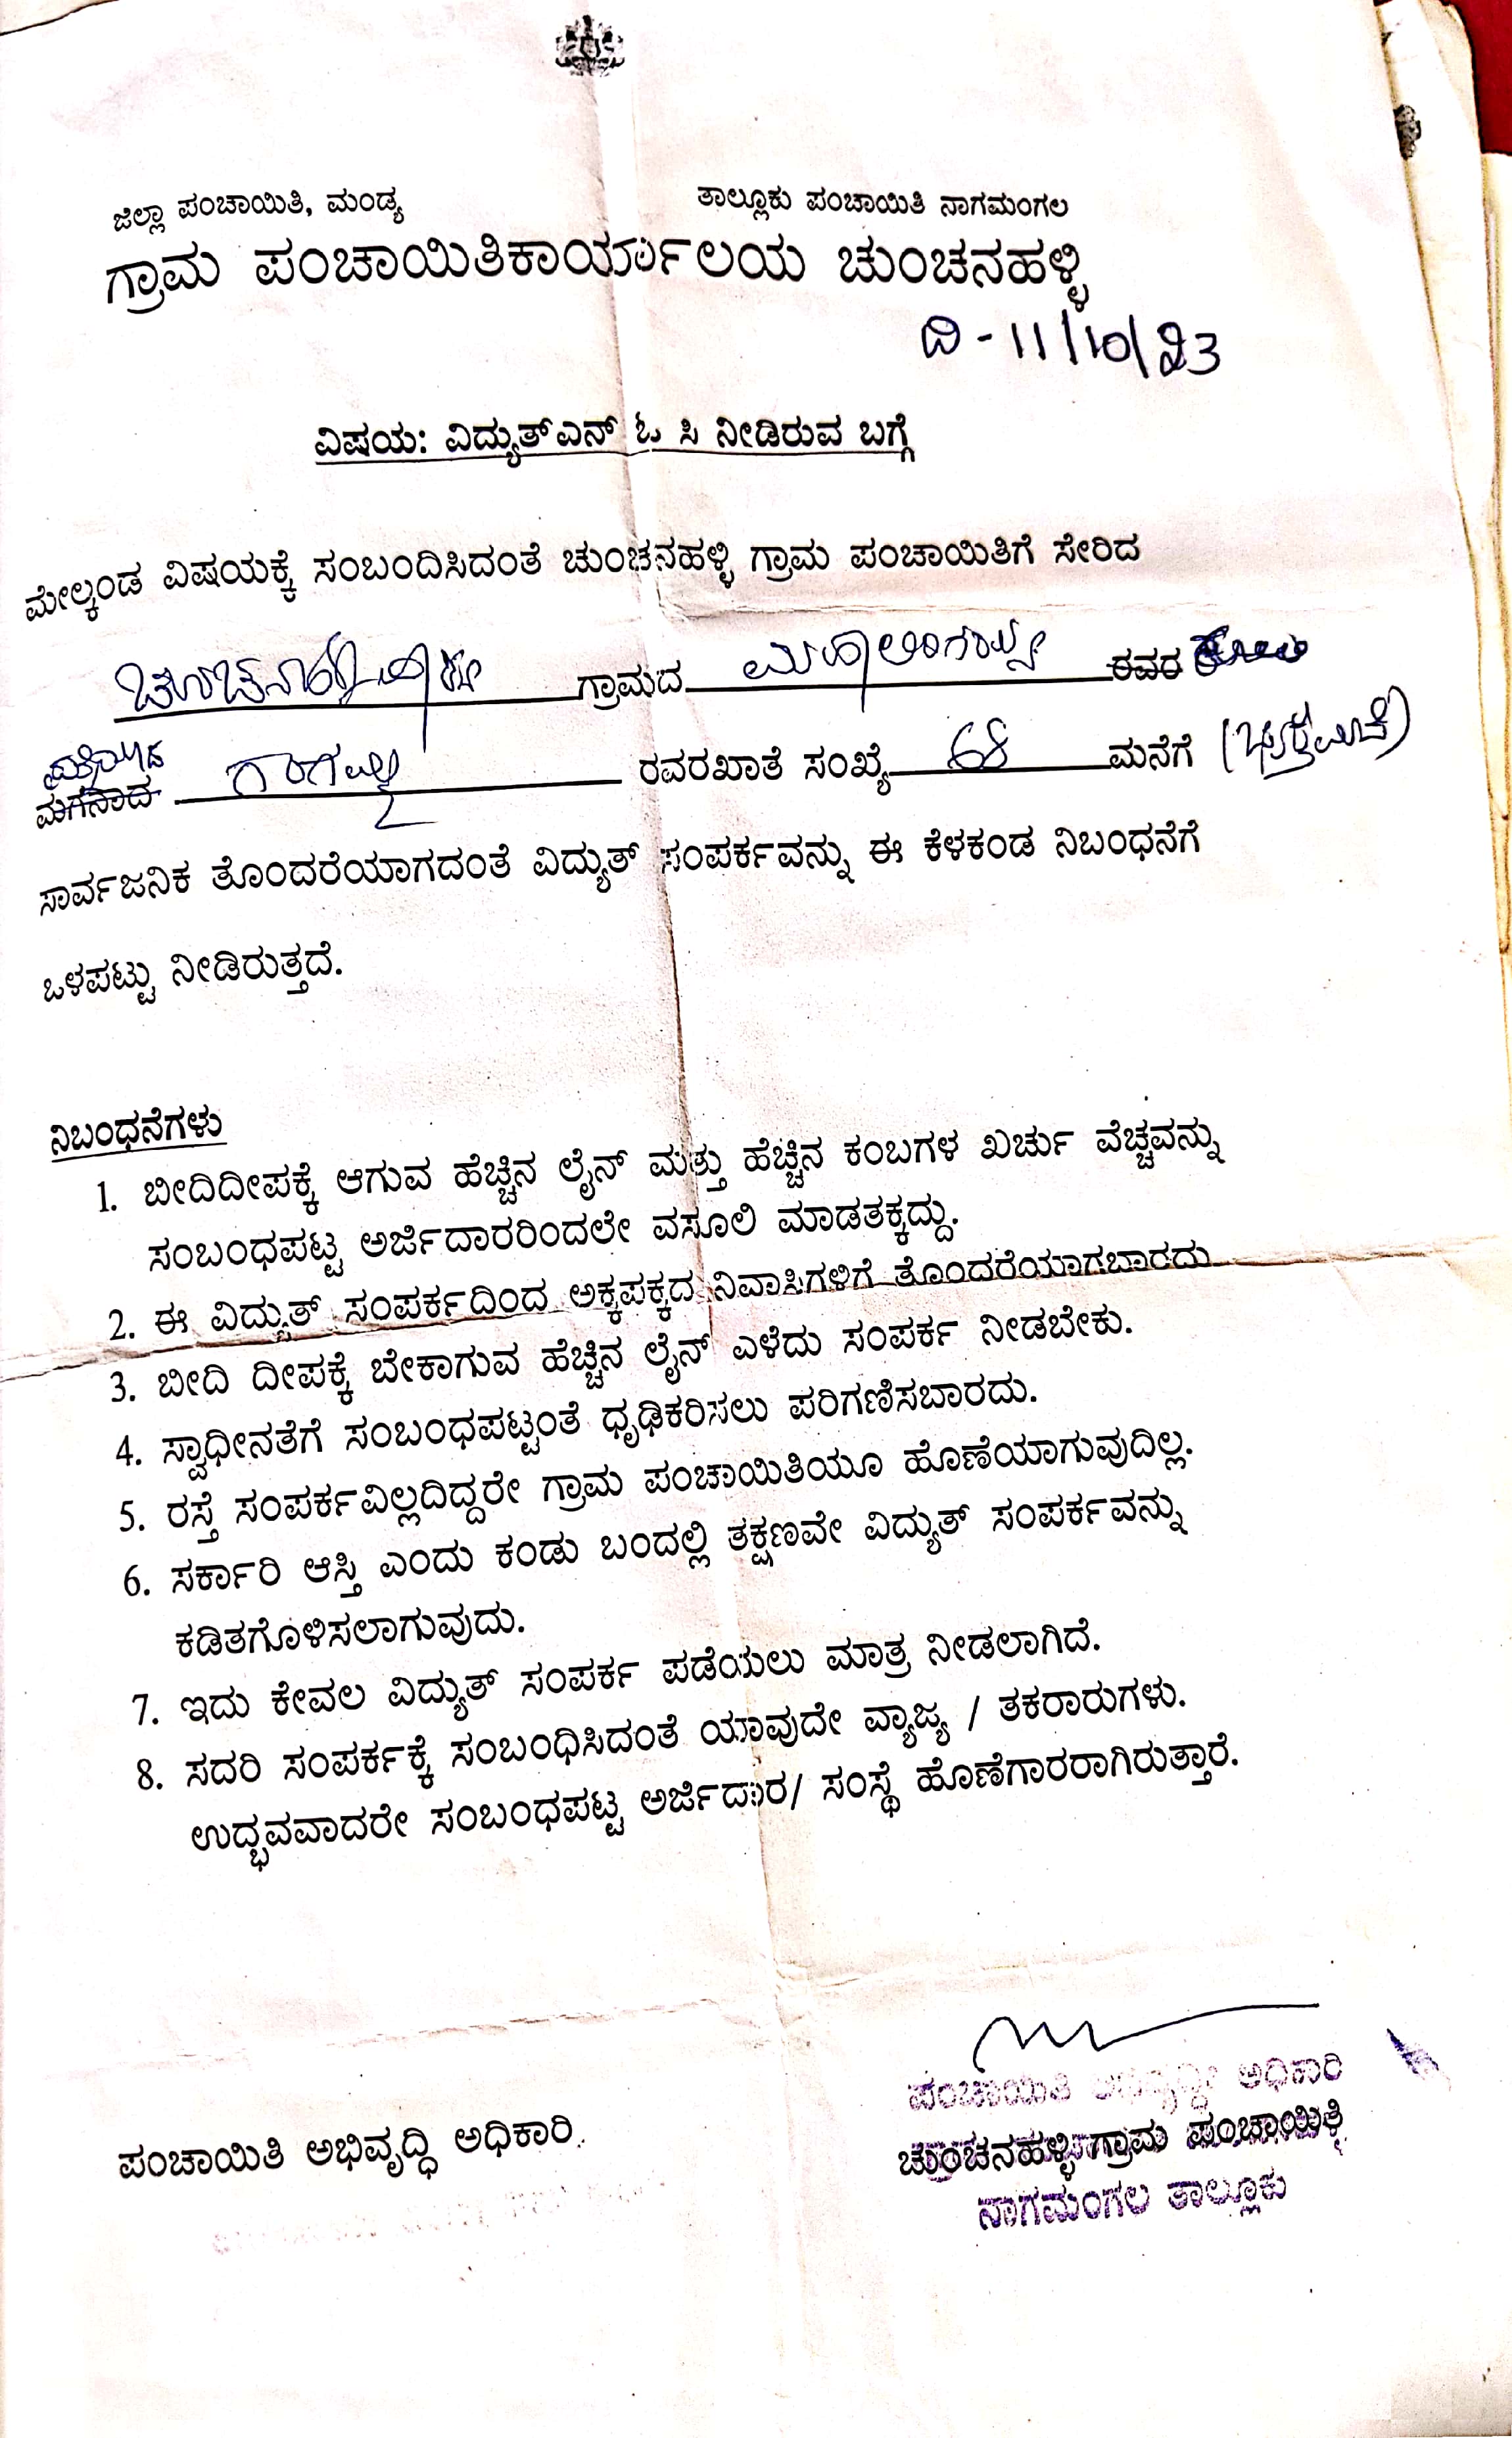 ಜಿಲ್ಲಾ ಪಂಚಾಯಿತಿ, ಮಂಡ್ಯ ತಾಲ್ಲೂಕು ಪಂಚಾಯಿತಿ ನಾಗಮಂಗಲ
ಗ್ರಾಮ ಪಂಚಾಯಿತಿಕಾರ್ಯಾಲಯ ಚುಂಚನಹಳ್ಳಿ
ದಿ - 11/10/23
ವಿಷಯ: ವಿದ್ಯುತ್‌ಎನ್ ಓ ಸಿ ನೀಡಿರುವ ಬಗ್ಗೆ
ಮೇಲ್ಕಂಡ ವಿಷಯಕ್ಕೆ ಸಂಬಂದಿಸಿದಂತೆ ಚುಂಚನಹಳ್ಳಿ ಗ್ರಾಮ ಪಂಚಾಯಿತಿಗೆ ಸೇರಿದ
ಗ್ರಾಮದ ರವರ
ಮಗನಾದ ರವರಖಾತೆ ಸಂಖ್ಯೆ 68 ಮನೆಗೆ
ಸಾರ್ವಜನಿಕ ತೊಂದರೆಯಾಗದಂತೆ ವಿದ್ಯುತ್ ಸಂಪರ್ಕವನ್ನು ಈ ಕೆಳಕಂಡ ನಿಬಂಧನೆಗೆ
ಒಳಪಟ್ಟು ನೀಡಿರುತ್ತದೆ.
ನಿಬಂಧನೆಗಳು
1. ಬೀದಿದೀಪಕ್ಕೆ ಆಗುವ ಹೆಚ್ಚಿನ ಲೈನ್ ಮತ್ತು ಹೆಚ್ಚಿನ ಕಂಬಗಳ ಖರ್ಚು ವೆಚ್ಚವನ್ನು
ಸಂಬಂಧಪಟ್ಟ ಅರ್ಜಿದಾರರಿಂದಲೇ ವಸೂಲಿ ಮಾಡತಕ್ಕದ್ದು.
2. ಈ ವಿದ್ಯುತ್ ಸಂಪರ್ಕದಿಂದ ಅಕ್ಕಪಕ್ಕದ ನಿವಾಸಿಗಳಿಗೆ ತೊಂದರೆಯಾಗಬಾರದು
3. ಬೀದಿ ದೀಪಕ್ಕೆ ಬೇಕಾಗುವ ಹೆಚ್ಚಿನ ಲೈನ್ ಎಳೆದು ಸಂಪರ್ಕ ನೀಡಬೇಕು.
4. ಸ್ವಾಧೀನತೆಗೆ ಸಂಬಂಧಪಟ್ಟಂತೆ ಧೃಢಿಕರಿಸಲು ಪರಿಗಣಿಸಬಾರದು.
5. ರಸ್ತೆ ಸಂಪರ್ಕವಿಲ್ಲದಿದ್ದರೇ ಗ್ರಾಮ ಪಂಚಾಯಿತಿಯೂ ಹೊಣೆಯಾಗುವುದಿಲ್ಲ.
6. ಸರ್ಕಾರಿ ಆಸ್ತಿ ಎಂದು ಕಂಡು ಬಂದಲ್ಲಿ ತಕ್ಷಣವೇ ವಿದ್ಯುತ್ ಸಂಪರ್ಕವನ್ನು
ಕಡಿತಗೊಳಿಸಲಾಗುವುದು.
7. ಇದು ಕೇವಲ ವಿದ್ಯುತ್ ಸಂಪರ್ಕ ಪಡೆಯಲು ಮಾತ್ರ ನೀಡಲಾಗಿದೆ.
8. ಸದರಿ ಸಂಪರ್ಕಕ್ಕೆ ಸಂಬಂಧಿಸಿದಂತೆ ಯಾವುದೇ ವ್ಯಾಜ್ಯ / ತಕರಾರುಗಳು.
ಉದ್ಭವವಾದರೇ ಸಂಬಂಧಪಟ್ಟ ಅರ್ಜಿದಾರ/ ಸಂಸ್ಥೆ ಹೊಣೆಗಾರರಾಗಿರುತ್ತಾರೆ.
ಪಂಚಾಯಿತಿ ಅಭಿವೃದ್ಧಿ ಅಧಿಕಾರಿ
ಪಂಚಾಯಿತಿ ಅಧಿಕಾರಿ
ಚುಂಚನಹಳ್ಳಿ ಗ್ರಾಮ ಪಂಚಾಯಿತಿ
ನಾಗಮಂಗಲ ತಾಲ್ಲೂಕು